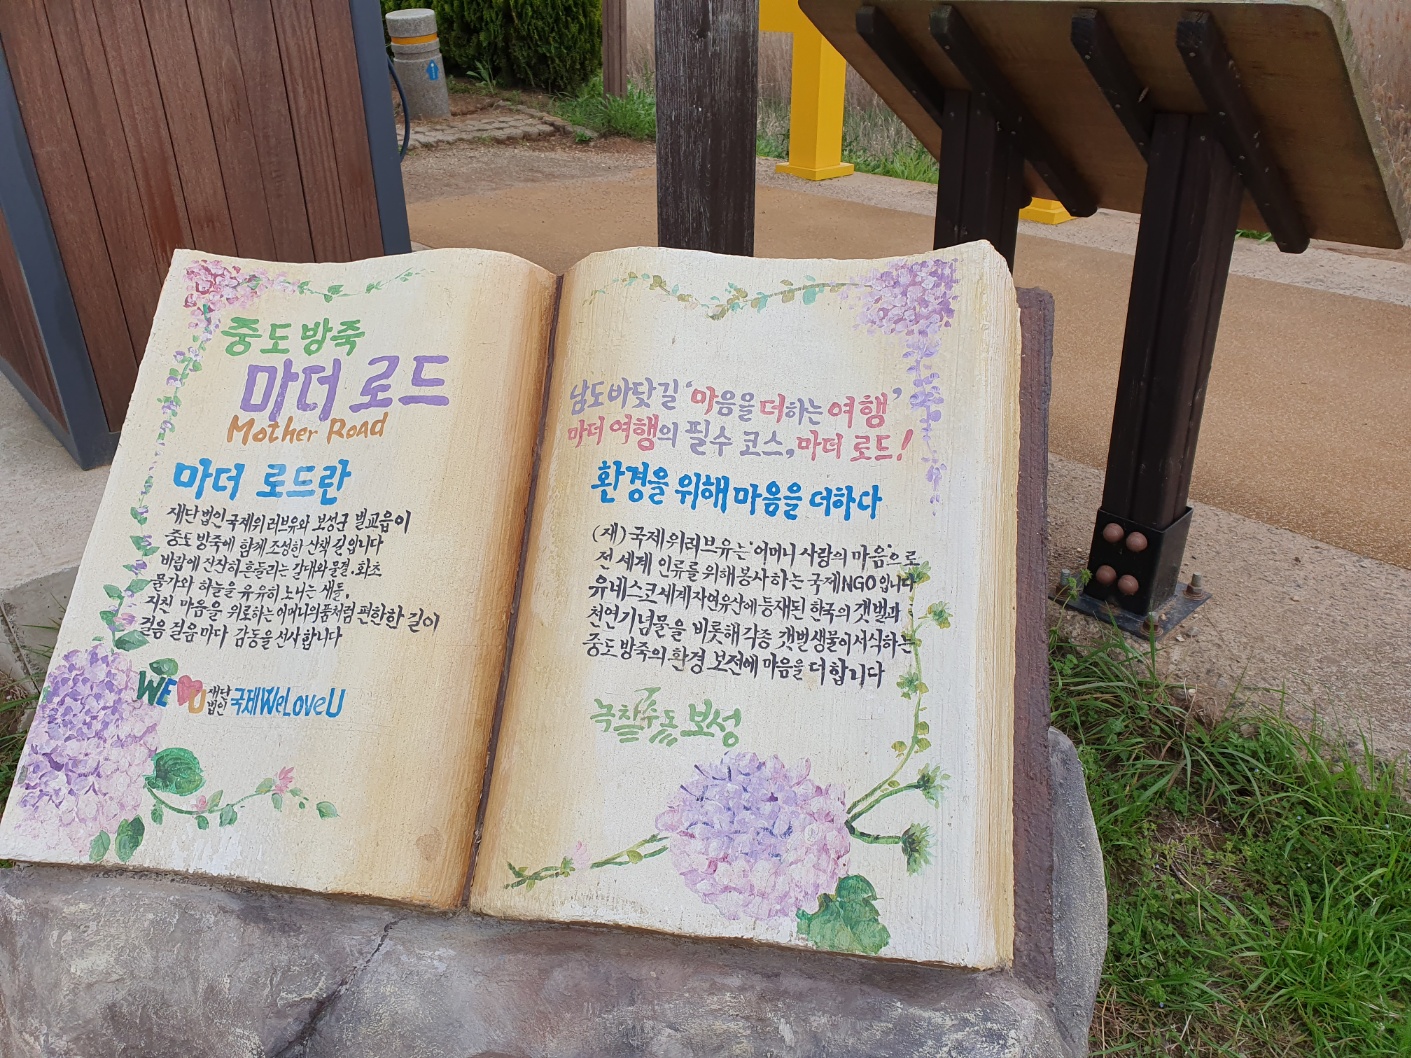 중도방죽
마더 로드
Mother Road
마더 로드란
재단법인 국제위러브유와 보성군 벌교읍이
중도 방죽에 함께 조성한 산책 길입니다
바람에 잔잔히 흔들리는 갈대와 물결, 화초
물가와 하늘을 유유히 노니는 새들,
지친 마음을 위로하는 어머니의 품처럼 편한한 길이
걸음 걸음마다 감동을 선사합니다
WE U 재단법인 국제WeLoveU
남도 바닷길 '마음을 더하는 여행'
마더 여행의 필수 코스, 마더 로드!
환경을 위해 마음을 더하다
(재)국제위러브유는 '어머니 사랑의 마음'으로
전 세계 인류를 위해 봉사하는 국제NGO입니다
유네스코세계자연유산에 등재된 한국의 갯벌과
천연기념물을 비롯해 각종 갯벌 생물이 서식하는
중도 방죽의 환경 보전에 마음을 더합니다
녹차수도 보성